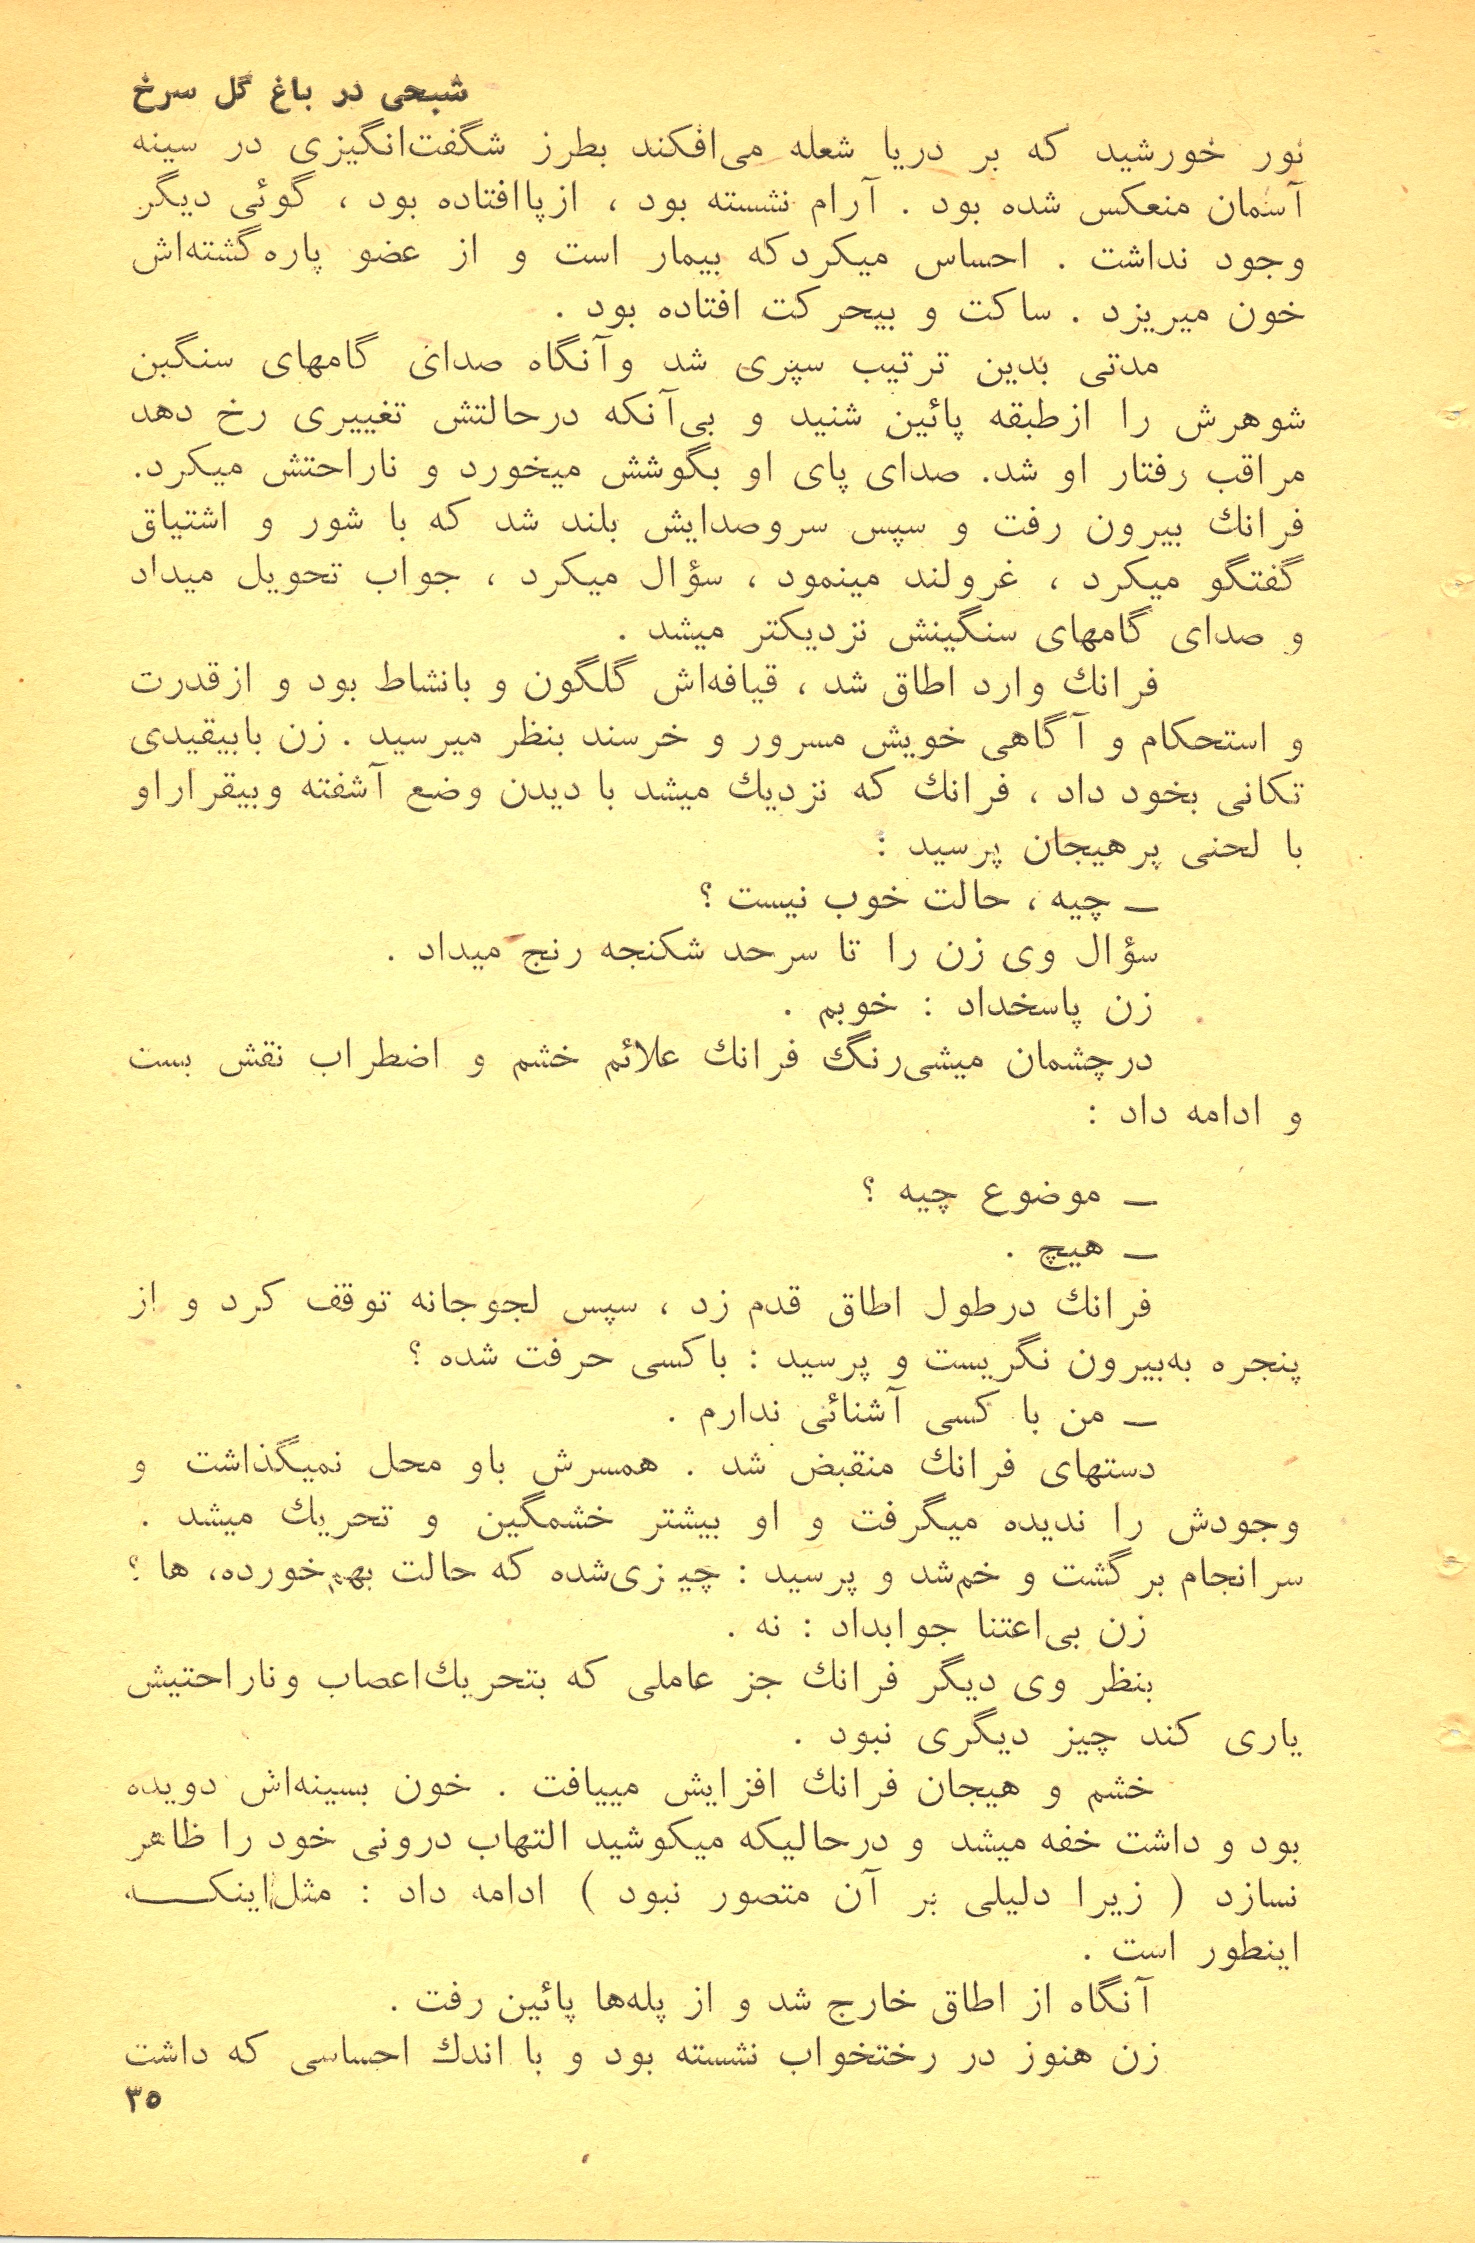 شبحی در باغ گل سرخ
نور خورشید که بر دریا شعله می‌افکند بطرز شگفت‌انگیزی در سینه
آسمان منعکس شده بود . آرام نشسته بود ، ازپاافتاده بود ، گوئی دیگر
وجود نداشت . احساس میکردکه بیمار است و از عضو پاره‌گشته‌اش
خون میریزد . ساکت و بیحرکت افتاده بود .
مدتی بدین ترتیب سپری شد وآنگاه صدای گامهای سنگین
شوهرش را ازطبقه پائین شنید و بی‌آنکه درحالتش تغییری رخ دهد
مراقب رفتار او شد. صدای پای او بگوشش میخورد و ناراحتش میکرد.
فرانك بیرون رفت و سپس سروصدایش بلند شد که با شور و اشتیاق
گفتگو میکرد ، غرولند مینمود ، سؤال میکرد ، جواب تحویل میداد
و صدای گامهای سنگینش نزدیکتر میشد .
فرانك وارد اطاق شد ، قیافه‌اش گلگون و بانشاط بود و ازقدرت
و استحکام و آگاهی خویش مسرور و خرسند بنظر میرسید . زن بابیقیدی
تکانی بخود داد ، فرانك که نزدیك میشد با دیدن وضع آشفته وبیقراراو
با لحنی پرهیجان پرسید :
ـ چیه ، حالت خوب نیست ؟
سؤال وی زن را تا سرحد شکنجه رنج میداد .
زن پاسخداد : خوبم .
درچشمان میشی‌رنگ فرانك علائم خشم و اضطراب نقش بست
و ادامه داد :
ـ موضوع چیه ؟
ـ هیچ .
فرانك درطول اطاق قدم زد ، سپس لجوجانه توقف کرد و از
پنجره به‌بیرون نگریست و پرسید : باکسی حرفت شده ؟
ـ من با کسی آشنائی ندارم .
دستهای فرانك منقبض شد . همسرش باو محل نمیگذاشت و
وجودش را ندیده میگرفت و او بیشتر خشمگین و تحریك میشد .
سرانجام برگشت و خم‌شد و پرسید : چیزی‌شده که حالت بهم‌خورده، ها ؟
زن بی‌اعتنا جوابداد : نه .
بنظر وی دیگر فرانك جز عاملی که بتحریك‌اعصاب وناراحتیش
یاری کند چیز دیگری نبود .
خشم و هیجان فرانك افزایش مییافت . خون بسینه‌اش دویده
بود و داشت خفه میشد و درحالیکه میکوشید التهاب درونی خود را ظاهر
نسازد ( زیرا دلیلی بر آن متصور نبود ) ادامه داد : مثل‌اینکـــه
اینطور است .
آنگاه از اطاق خارج شد و از پله‌ها پائین رفت .
زن هنوز در رختخواب نشسته بود و با اندك احساسی که داشت
۳۵